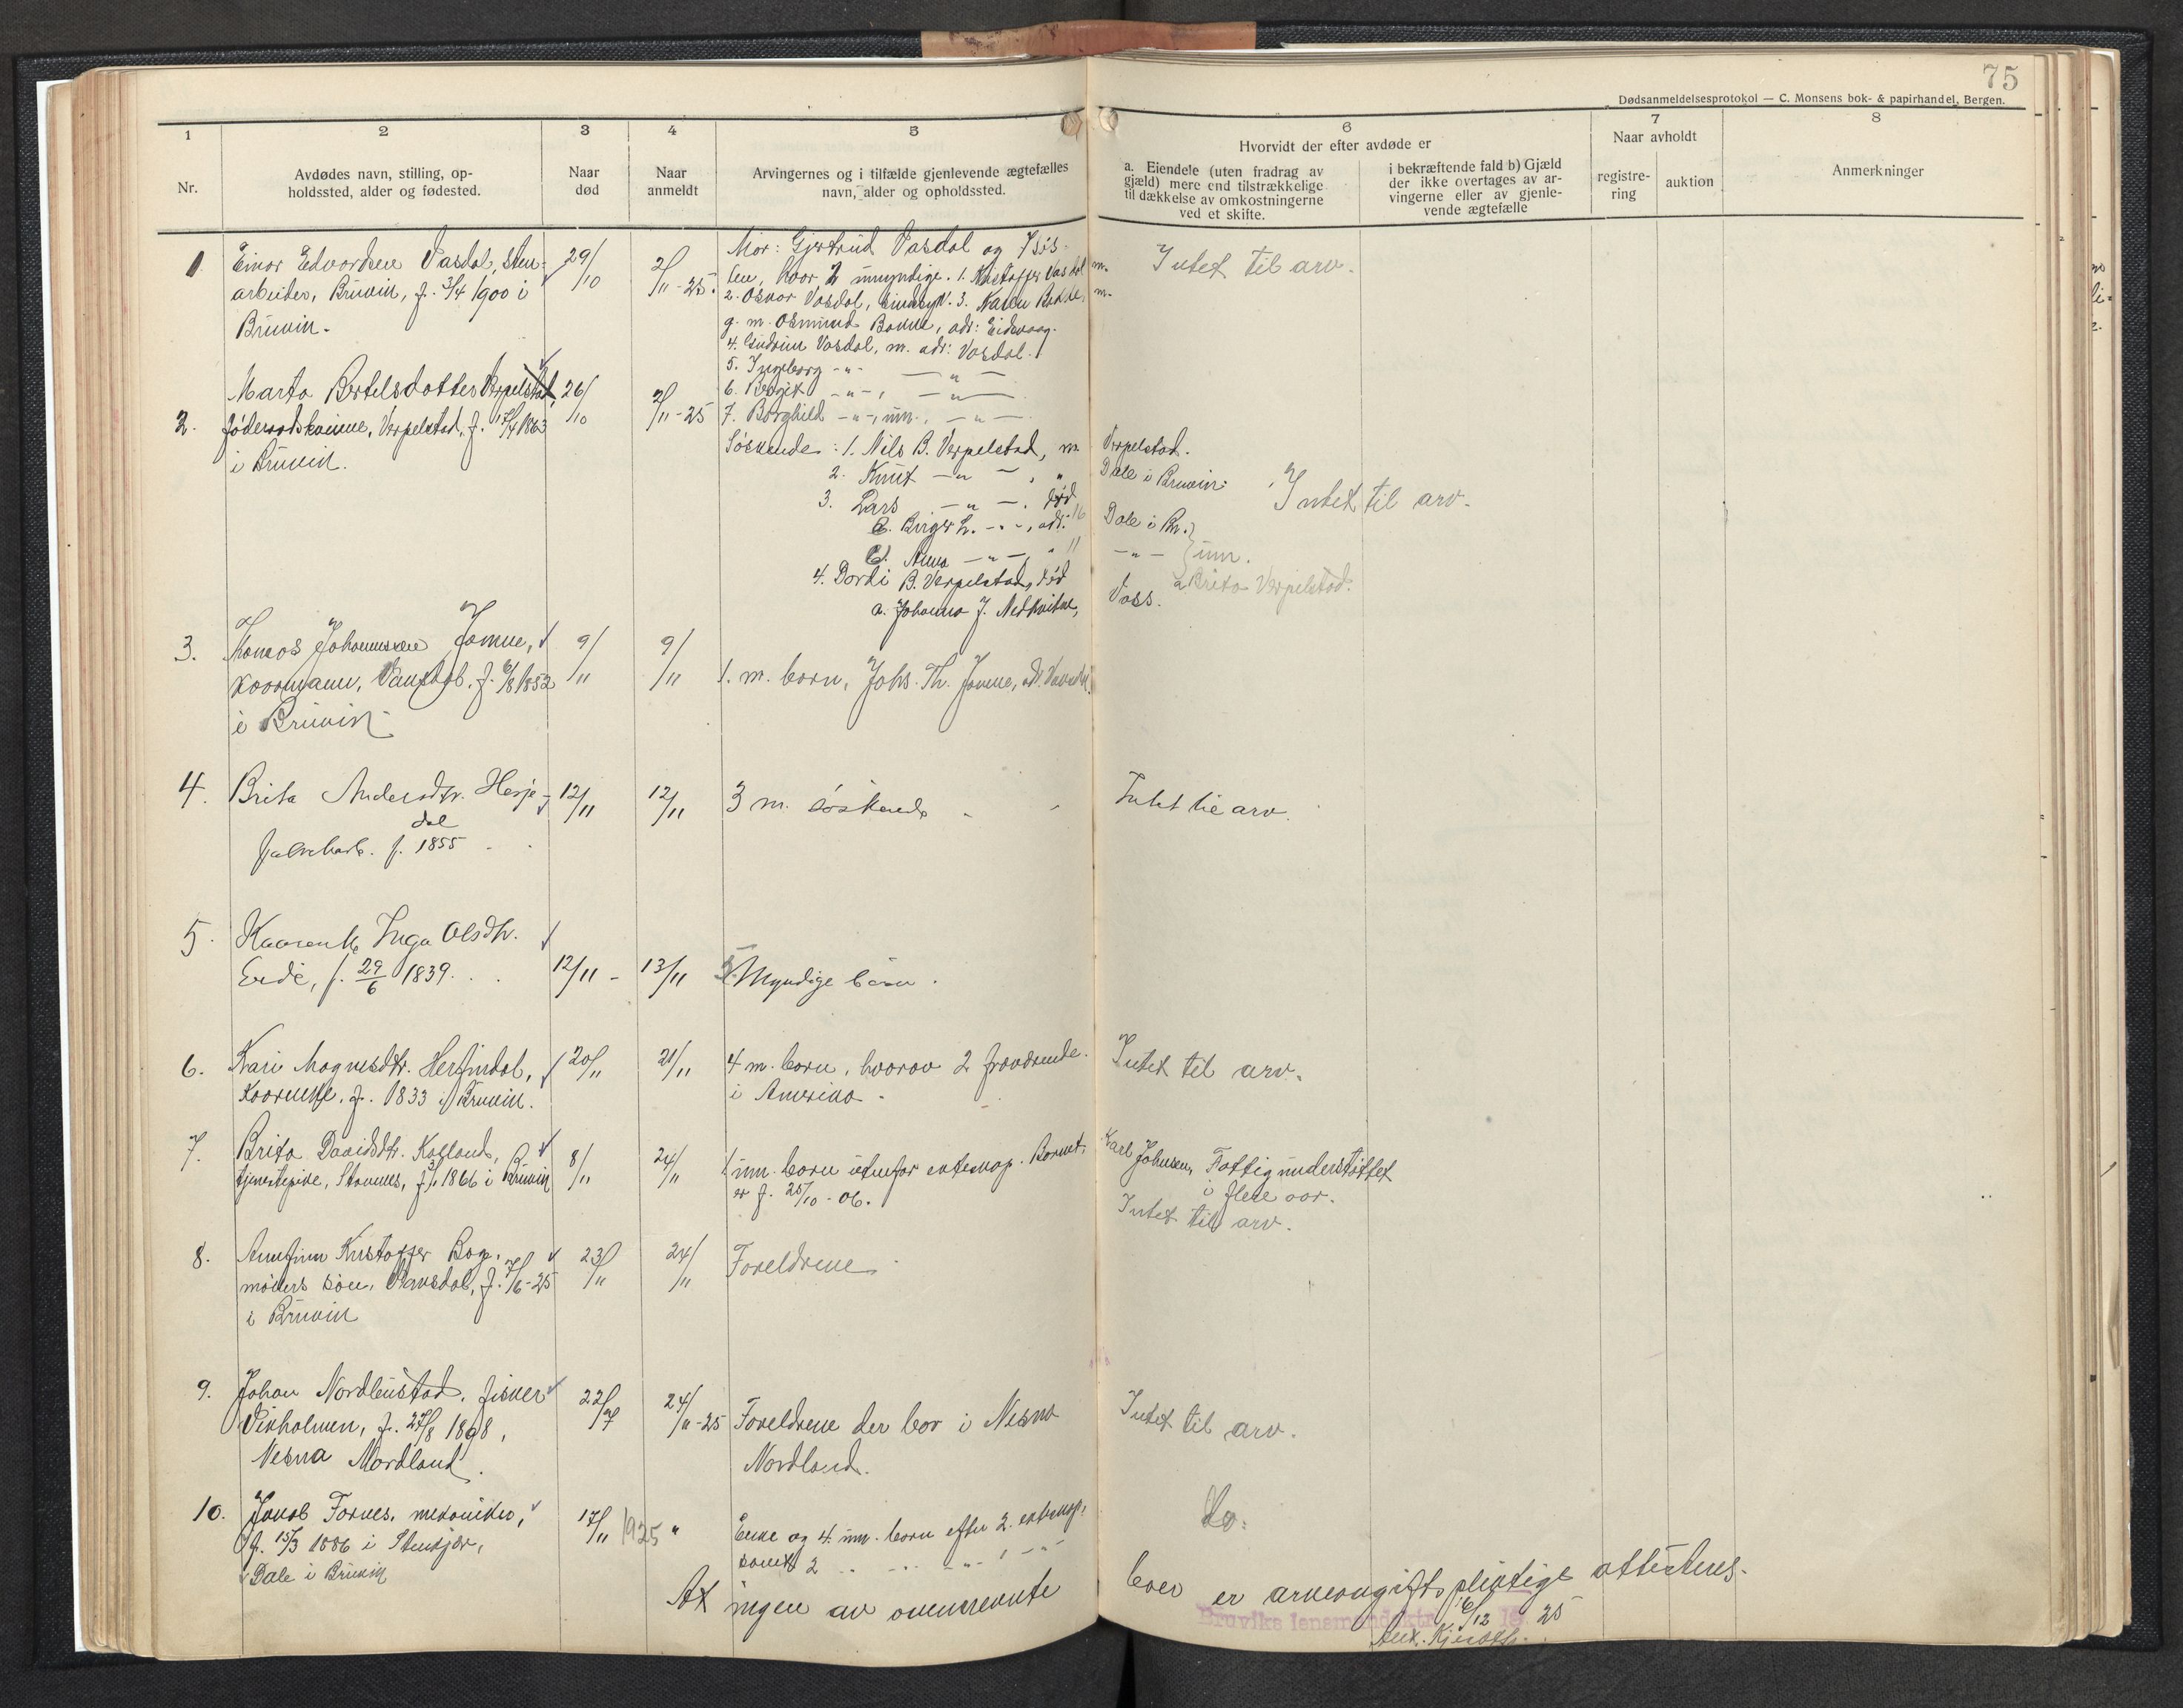 75
Dødsanmeldelsesprotokol — C. Monsens bok- & papirhandel, Bergen.
1 2 3 4 5 6 7 8
Nr.
Avdødes navn, stilling, op-
holdssted, alder og fødested.
Naar
død
Naar
anmeldt
Arvingernes og i tilfælde gjenlevende ægtefælles
navn, alder og opholdssted.
Hvorvidt der efter avdøde er
a. Eiendele (uten fradrag av
gjæld) mere end tilstrækkelige
til dækkelse av omkostningerne
ved et skifte.
i bekræftende fald b) Gjæld
der ikke overtages av ar-
vingerne eller av gjenle-
vende ægtefælle
Naar avholdt
registre-
ring
auktion
Anmerkninger
1 Einar Edvardsen Vasdal, sten-
arbeider, Bruvik, f. 3/4 1900 i
Bruvik.
29/10
2/11-25.
Mor: Gjertrud Vasdal og 7 søs-
ken, hvor 2 umyndige. 1. Kristoffer Vasdal m.
2. Oskar Vasdal, 3. m.
g. m. Osmund adr: Eidsvaag.
4. Gudrun Vasdal, m. adr: Vasdal.
5. Ingeborg -"- — " —
6. Bergit -"-, — " —
7. Borghild -"-, um., — " —
Intet til arv.
2. Marta Bertelsdotter Verpelstad,
føderaadskvinne, Verpelstad, f. 17/4 1863
i Bruvik.
26/10
2/11-25
Søskende: 1. Nils B. Verpelstad, m Verpelstad.
2. Knut — " — , " Dale i Bruvik.
3. Lars — " —. død
Birger L. -"-, adr. 16 Dale i Br.
Anna -"-, " 11 — " — } um.
4. Dordi B. Verpelstad, død
a. Johanna J. Nedkvitne, Voss.
a Brita Verpelstad.
Intet til arv.
3. Tomas Johannessen Jamne,
kaarmann, f. 6/8 1852
i Bruvik
9/11
9/11
1. m. born, Johs. Th. Jamne, adr.
4. Brita Andersdtr. Hesje-
dal
f. 1855
12/11
12/11
3 m. søskende
Intet til arv.
5. Kaarenk Inga Olsdtr.
Eide, f. 29/6 1839.
12/11 -
13/11
Myndige børn.
6. Kari Magnesdtr. Herfindal,
kaarenke, f. 1833 i Bruvik.
20/11
21/11
4 m. born, hvorav 2 fraværende
i Amerika
Intet til arv.
7. Brita Davidsdtr. Kalland,
tjenestepike, Stamnes, f. 1866 i Bruvik
8/11
24/11
1 um. born utenfor ektskap. Barnet: Karl Johnsen,
er f. 25/10-06.
Fattigunderstøttet
i flere aar.
Intet til arv.
8. Arnfinn Kristoffer Bog.
murers søn, Vaksdal, f. 7/6-25
i Bruvik
23/11
24/11
Foreldrene
9. Johan Nordleustad, fisker
Vikholmen, f. 27/8 1898,
Nesna Nordland.
22/7
24/11-25
Foreldrene der bor i Nesna
Nordland.
Intet til arv.
10. Jakob Fornes, mekaniker,
f. 15/3 1886 i Stenkjær,
Dale i Bruvik
17/11 1925
"
Enke og 4 um. born efter 2. ektskap,
samt 2 " " " 1 -"-
Do.
At ingen av ovennevnte boer er arveavgiftspliktige attesteres.
Bruviks lensmandsktr. 16/12 1925